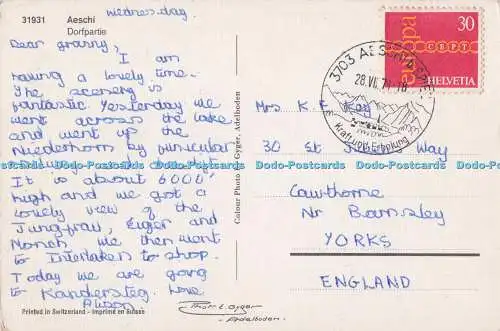 31931 Aeschi
Dorfpartie
Wednesday
Dear granny,
I am
having a lovely time.
The scenery is
fantastic. Yesterday we
went across the lake
and went up the
Niederhorn by funicular
It is about 6000'
high and we got a
lovely view of the
Jungfrau, Eiger and
Monch. We then went
to Interlaken to shop.
Today we are going
to Kandersteg. Love
Alison
Printed in Switzerland - Imprimé en Suisse
Colour Photo Thor. E. Gyger, Adelboden
Thor. E. Gyger
-Adelboden-
3703 AESCHI
28.VII.71
Kraft und Erholung
europa
CEPT
30
HELVETIA
Mrs K. F. Kay
30 St. Way
Cawthorne
Nr Barnsley
YORKS
ENGLAND
Dodo-Postcards Dodo-Postcards Dodo-Postcards